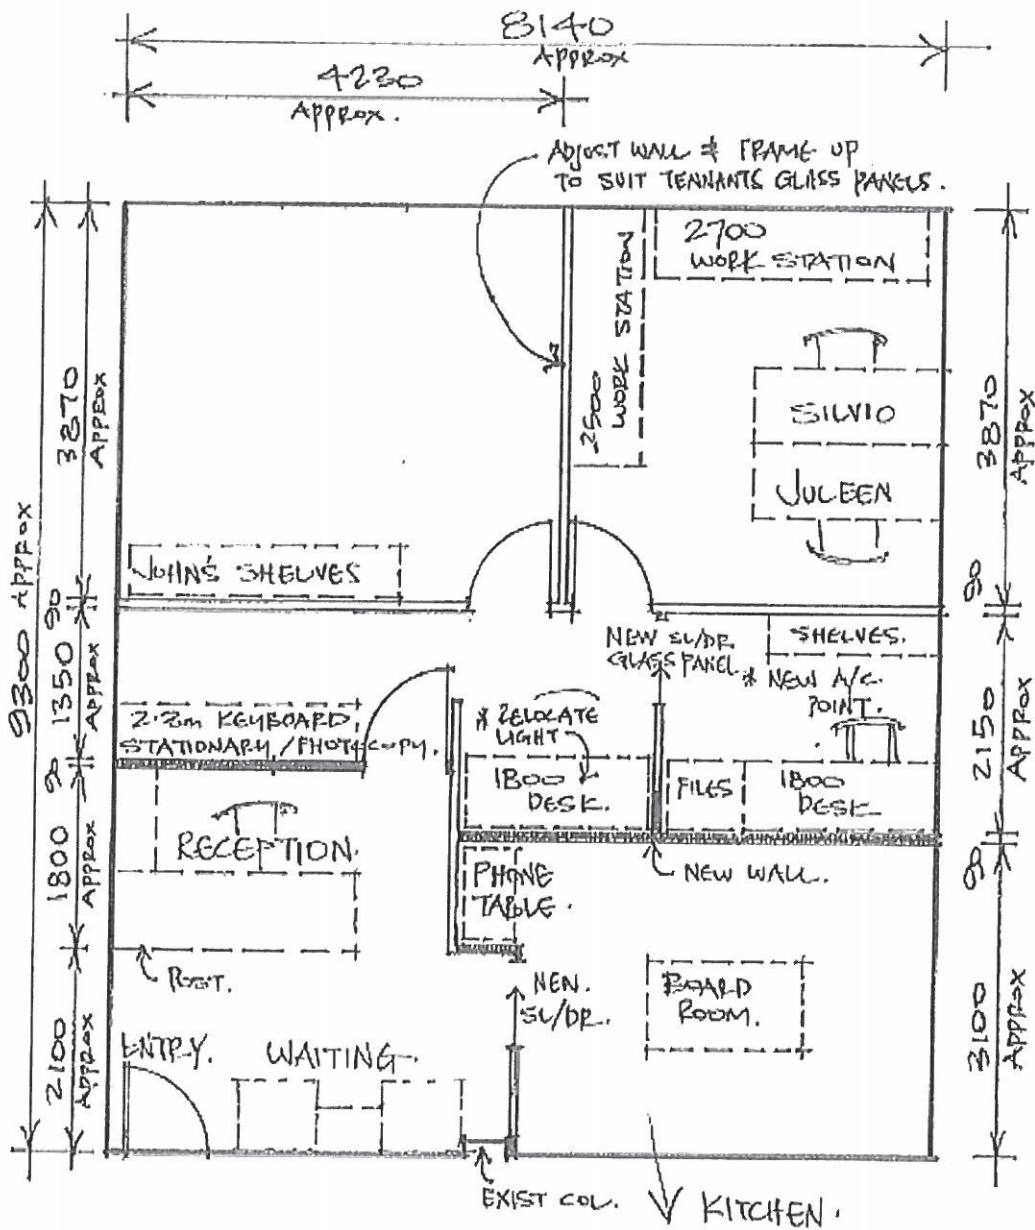 8140
APPROX
4230
APPROX.
ADJUST WALL & FRAME UP
TO SUIT TENNANTS GLASS PANELS.
2700
WORK STATION
2500
WORK STATION
SILVIO
JULEEN
JOHN'S SHELVES
9300 APPROX
3870
APPROX
90
1350
APPROX
90
1800
APPROX
2100
APPROX
3870
APPROX
90
2150
APPROX
90
3100
APPROX
NEW SL/DR.
GLASS PANEL.
SHELVES.
* NEW A/C.
POINT.
2.2m KEYBOARD
STATIONARY / PHOTOCOPY.
* RELOCATE
LIGHT
1800
DESK.
FILES
1800
DESK.
RECEPTION.
PHONE
TABLE.
NEW WALL.
POST.
NEW.
SL/DR.
BOARD
ROOM.
ENTRY.
WAITING.
EXIST COL.
KITCHEN.